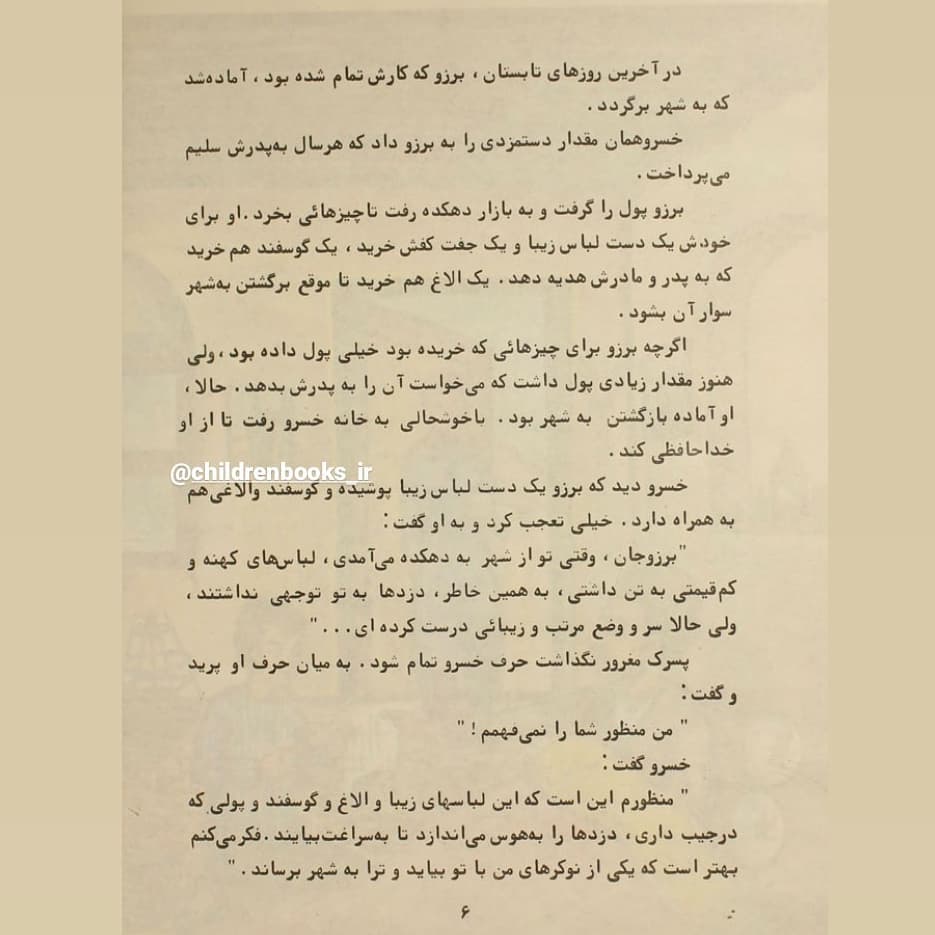 در آخرین روزهای تابستان ، برزو که کارش تمام شده بود ، آماده‌شد
که به شهر برگردد .
خسروهمان مقدار دستمزدی را به برزو داد که هرسال به‌پدرش سلیم
می‌پرداخت .
برزو پول را گرفت و به بازار دهکده رفت تاچیزهائی بخرد .او برای
خودش یک دست لباس زیبا و یک جفت کفش خرید ، یک گوسفند هم خرید
که به پدر و مادرش هدیه دهد . یک الاغ هم خرید تا موقع برگشتن به‌شهر
سوار آن بشود .
اگرچه برزو برای چیزهائی که خریده بود خیلی پول داده بود ، ولی
هنوز مقدار زیادی پول داشت که می‌خواست آن را به پدرش بدهد . حالا ،
او آماده بازگشتن به شهر بود . باخوشحالی به خانه خسرو رفت تا از او
خداحافظی کند .
@childrenbooks_ir
خسرو دید که برزو یک دست لباس زیبا پوشیده و گوسفند والاغی‌هم
به همراه دارد . خیلی تعجب کرد و به او گفت :
"برزوجان ، وقتی تو از شهر به دهکده می‌آمدی ، لباس‌های کهنه و
کم‌قیمتی به تن داشتی ، به همین خاطر ، دزدها به تو توجهی نداشتند ،
ولی حالا سر و وضع مرتب و زیبائی درست کرده ای . . . "
پسرک مغرور نگذاشت حرف خسرو تمام شود . به میان حرف او پرید
و گفت :
" من منظور شما را نمی‌فهمم ! "
خسرو گفت :
" منظورم این است که این لباسهای زیبا و الاغ و گوسفند و پولی که
درجیب داری ، دزدها را به‌هوس می‌اندازد تا به‌سراغت‌بیایند .فکرمی‌کنم
بهتر است که یکی از نوکرهای من با تو بیاید و ترا به شهر برساند . "
۶